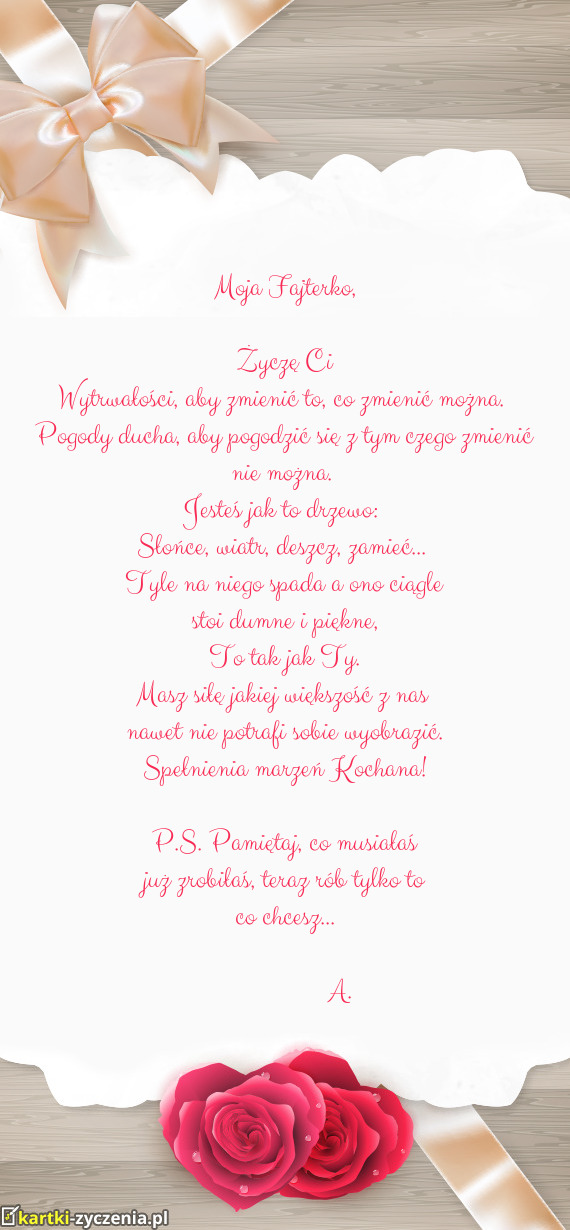 Moja Fajterko,
Życzę Ci
Wytrwałości, aby zmienić to, co zmienić można.
Pogody ducha, aby pogodzić się z tym czego zmienić
nie można.
Jesteś jak to drzewo:
Słońce, wiatr, deszcz, zamieć...
Tyle na niego spada a ono ciągle
stoi dumne i piękne,
To tak jak Ty.
Masz siłę jakiej większość z nas
nawet nie potrafi sobie wyobrazić.
Spełnienia marzeń Kochana!
P.S. Pamiętaj, co musiałaś
już zrobiłaś, teraz rób tylko to
co chcesz...
A.
kartki-zyczenia.pl